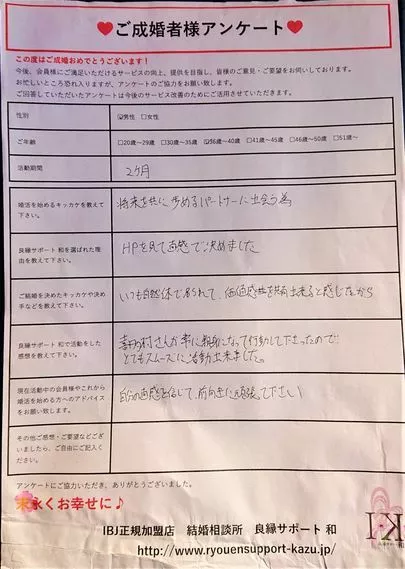 ♥ご成婚者様アンケート♥
この度はご成婚おめでとうございます！
今後、会員様にご満足いただけるサービスの向上、提供を目指し、皆様のご意見・ご要望をお伺いしております。
お忙しいところ恐れ入りますが、アンケートのご協力をお願い致します。
ご回答していただいたアンケートは今後のサービス改善のためにご活用させていただきます。
性別 ☑男性 □女性
ご年齢 □20歳～29歳 □30歳～35歳 ☑36歳～40歳 □41歳～45歳 □46歳～50歳 □51歳～
活動期間 2ヶ月
婚活を始めるキッカケを教えて
下さい。
将来を共に歩めるパートナーに出会う為
良縁サポート 和を選ばれた理
由を教えて下さい。
HPを見て直感で決めました
ご結婚を決めたキッカケや決め
手などを教えて下さい。
いつも自然体で居られて、価値感を共有出来ると感じたから
良縁サポート 和で活動をした
感想を教えて下さい。
村さんが常に親身になって行動して下さったので
とてもスムーズに活動出来ました。
現在活動中の会員様やこれから
婚活を始める方へのアドバイス
をお願い致します。
自分の直感を信じて、前向きに頑張って下さい
その他ご感想・ご要望などござ
いましたら、ご自由にご記入く
ださい。
アンケートにご協力いただき、ありがとうございました。
末永くお幸せに♪
IBJ正規加盟店 結婚相談所 良縁サポート 和
http://www.ryouensupport-kazu.jp/